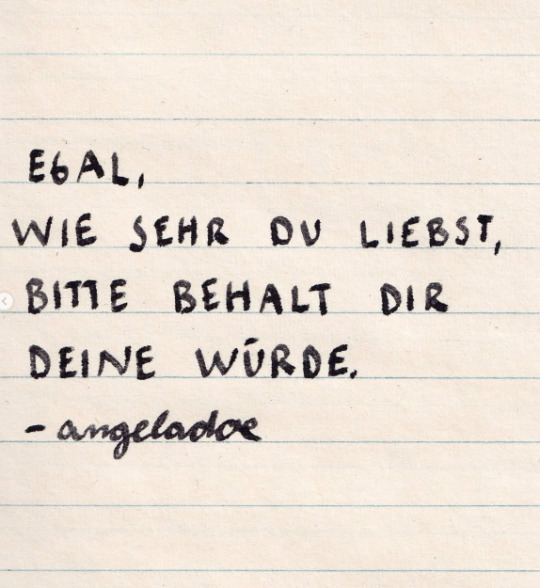 EGAL,
WIE SEHR DU LIEBST,
BITTE BEHALT DIR
DEINE WÜRDE.
- angeladoe